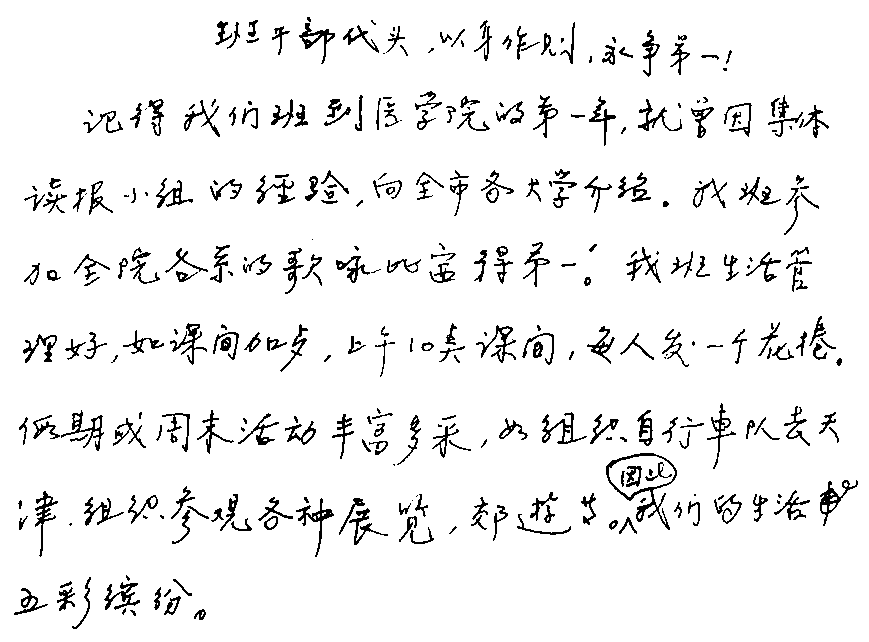 班干部代头，以身作则，永争第一！
记得我们班到医学院的第一年，就曾因集体
读报小组的经验，向全市各大学介绍。我班参
加全院各系的歌咏比赛得第一。我班生活管
理好，如课间加点，上午10点课间，每人发一个花捲。
假期或周末活动丰富多采，如组织自行車队去天
津．组织参观各种展览，郊遊等。因此我们的生活
五彩缤纷。